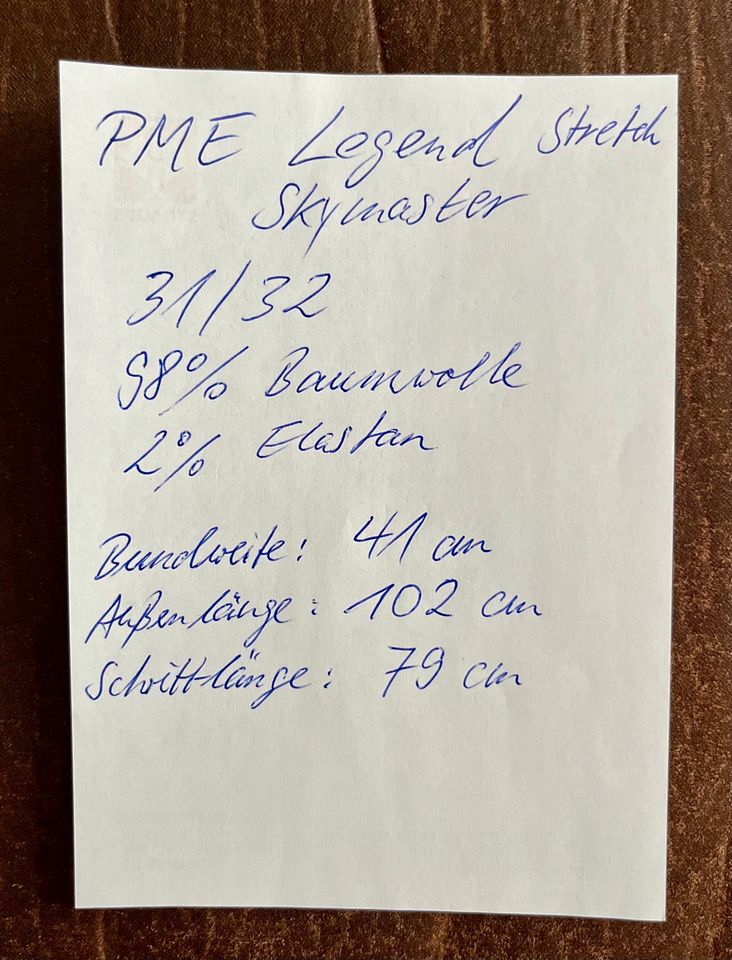 PME Legend Stretch
Skymaster
31/32
98% Baumwolle
2% Elastan
Bundweite: 41 cm
Außenlänge: 102 cm
Schrittlänge: 79 cm